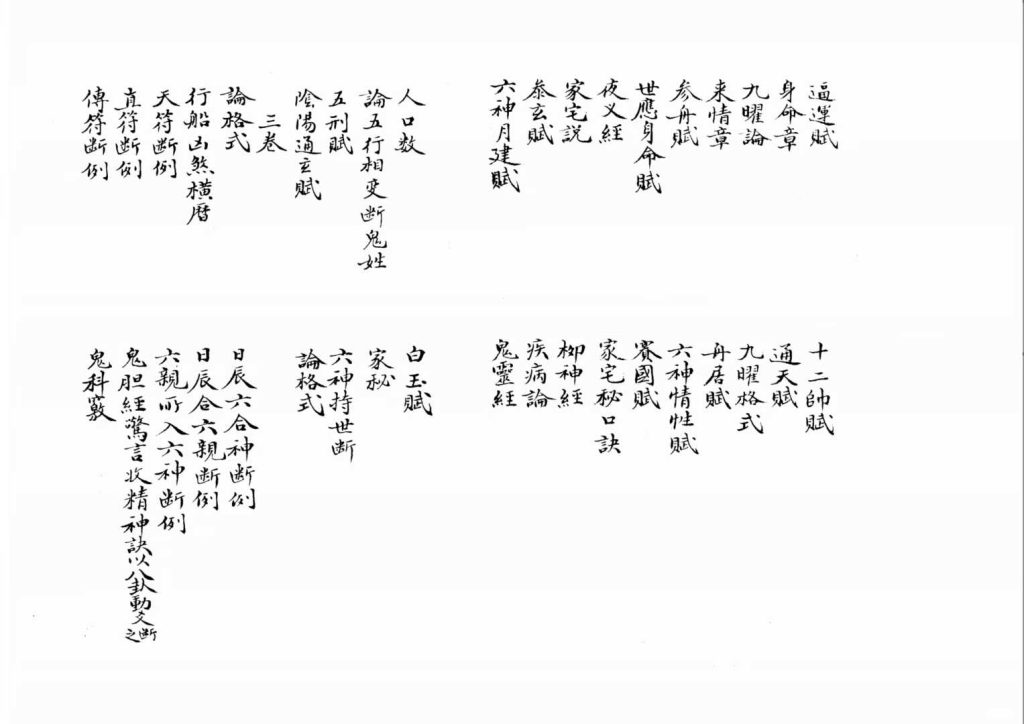 逼運賦
十二帥賦
身命章
通天賦
九曜論
九曜格式
来情章
舟居賦
参舟賦
六神情性賦
世應身命賦
賽國賦
夜义經
家宅秘口訣
家宅説
柳神經
泰玄賦
疾病論
六神月建賦
鬼靈經
人口数
白玉賦
論五行相变断鬼姓
家秘
五刑賦
六神持世断
陰陽通玄賦
論格式
三卷
論格式
日辰六合神断例
行船凶煞横曆
日辰合六親断例
天符断例
六親所入六神断例
直符断例
鬼胆經驚言收精神訣以八卦動爻断之
傳符断例
鬼科竅